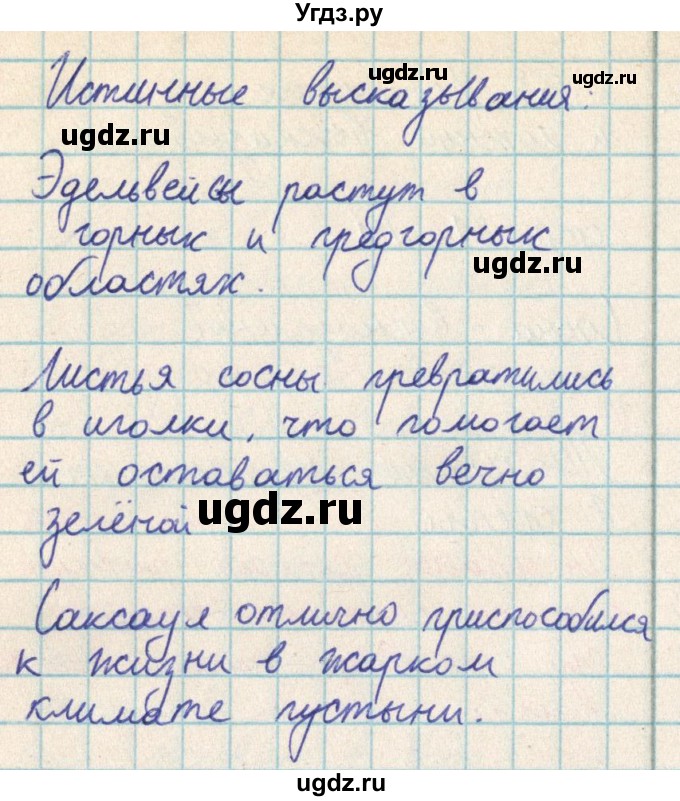 Угдз.ру
Истинные высказывания:
ugdz.ru
ugdz.ru
ugdz.ru
Эдельвейсы растут в
горных и предгорных
областях.
ugdz.ru
Листья сосны превратились
в иголки, что помогает
ей оставаться вечно
зелёной
ugdz.ru
Саксаул отлично приспособился
к жизни в жарком
климате пустыни.
ugdz.ru